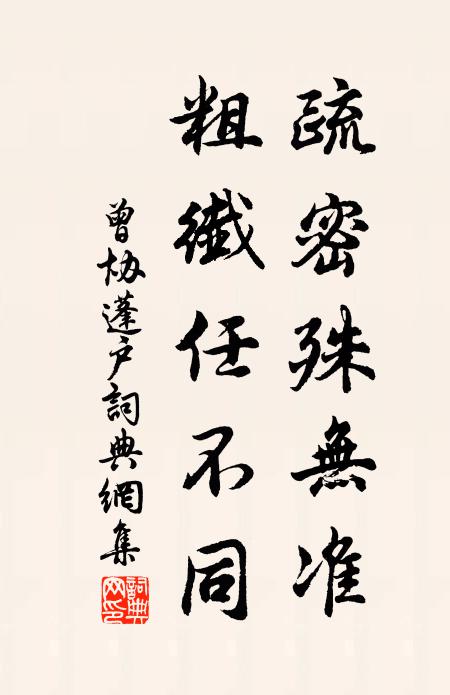 疏密殊無准
粗纖任不同
曾協蓬戶詞典網集
詞典網印